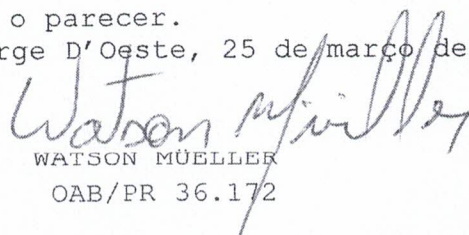 o parecer.
rge D'Oeste, 25 de março de
Watson Müeller
WATSON MÜELLER
OAB/PR 36.172